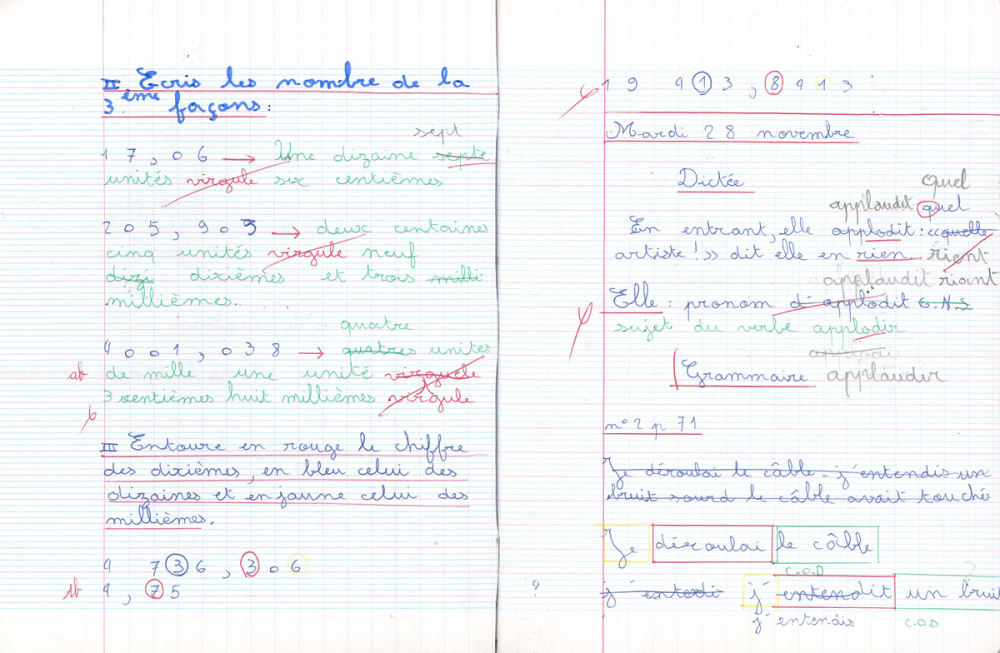 II Ecris les nombre de la
3ème façons :
sept
17,06 → Une dizaine septe
unités virgule six centièmes
205,903 → deux centaines
cinq unités virgule neuf
dizi dixièmes et trois milli
millièmes.
quatre
4001,038 → quatres unités
de mille une unité virguele
3 centièmes huit millièmes virgule
III Entoure en rouge le chiffre
des dixièmes, en bleu celui des
dizaines et en jaune celui des
millièmes.
4 736,306
4,75
19 413,8413
Mardi 28 novembre
Dictée
Quel
applaudit quel
En entrant, elle applodit : «quelle
artiste !» dit elle en rien riant
applaudit riant
Elle : pronom d' applodit G.N.S
sujet du verbe applodir
applaudir
Grammaire
n°2 p 71
Je déroulai le câble j'entendis un
bruit sourd le câble avait touché
Je déroulai le câble
C.O.D
j' entendi j' entendit un bruit
j' entendais C.O.D